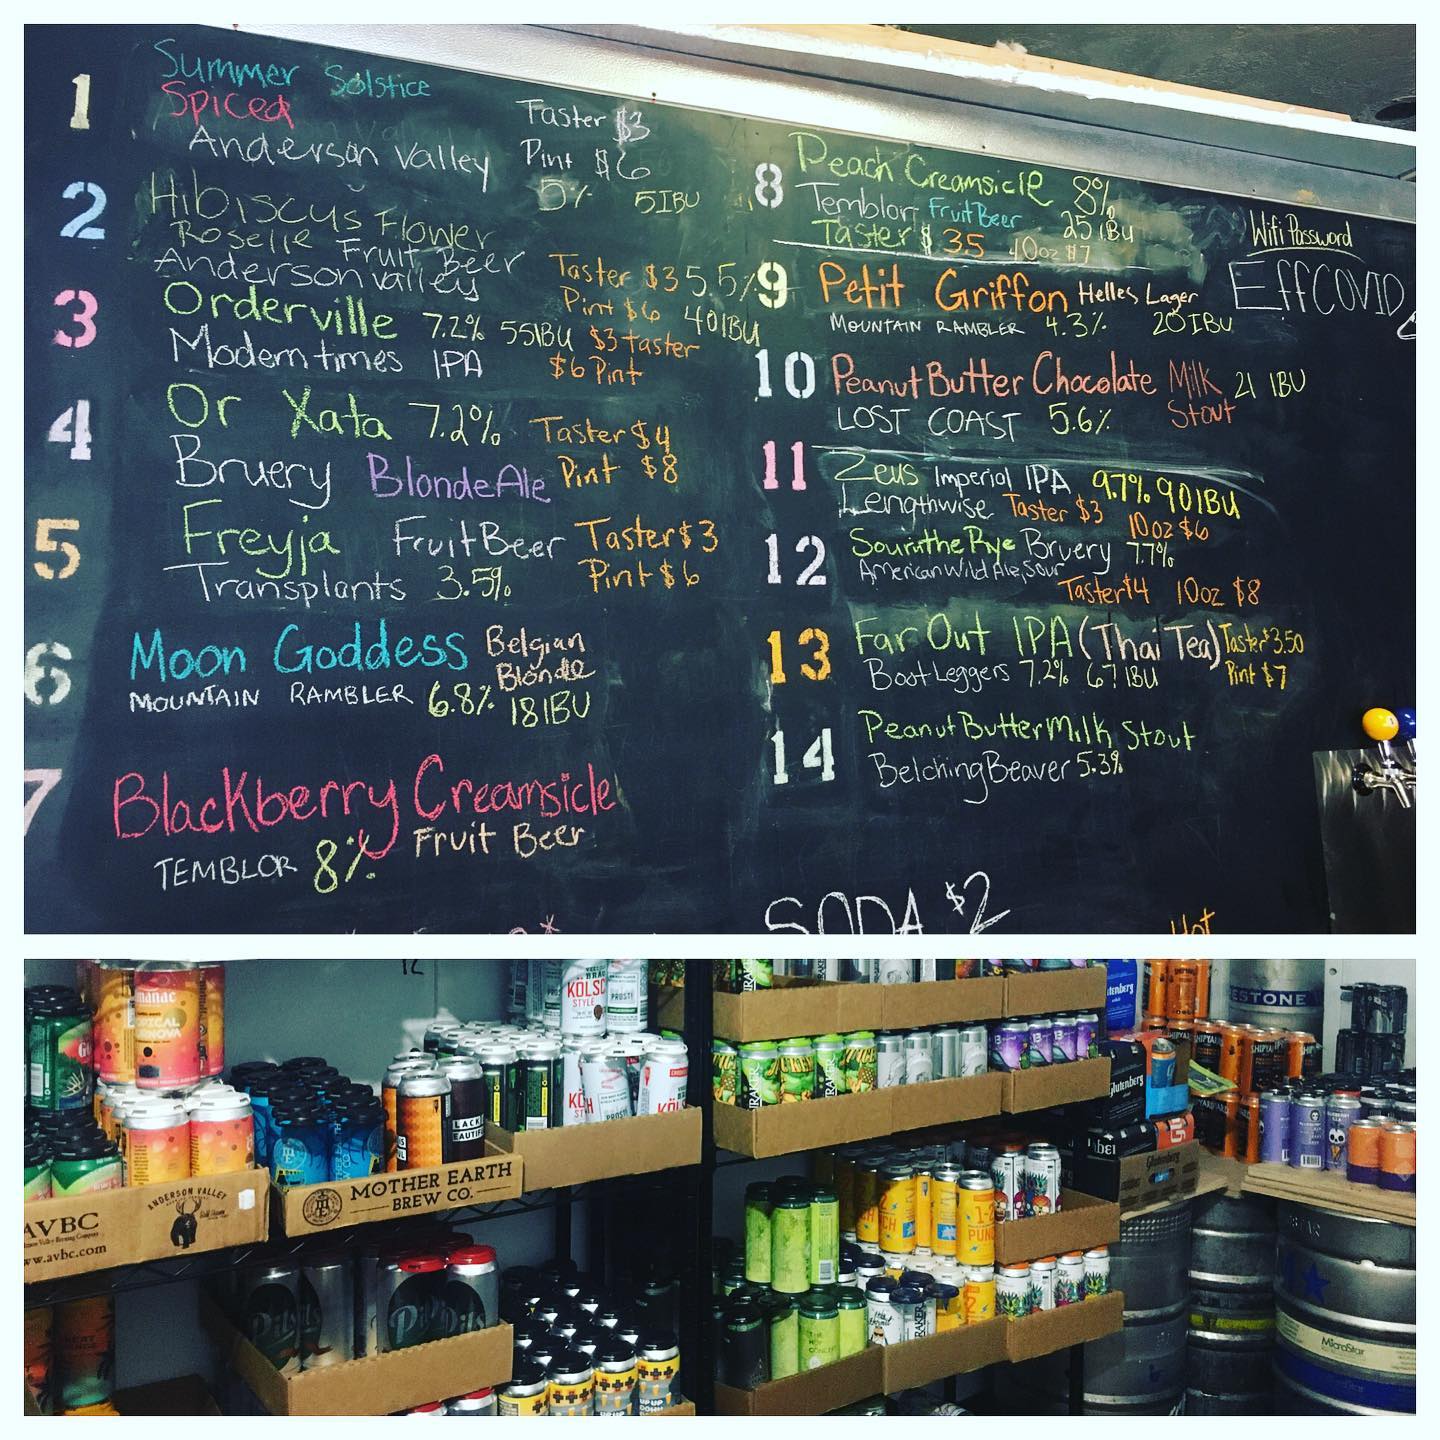 1
Summer Solstice
Spiced
Anderson Valley
Taster $3
Pint $6
5% 5IBU
2
Hibiscus Flower
Roselle Fruit Beer
Anderson Valley
Taster $3 5.5%
Pint $6 40IBU
3
Orderville 7.2% 55IBU $3 taster
Modern times IPA $6 Pint
4
Or Xata 7.2% Taster $4
Bruery Blonde Ale Pint $8
5
Freyja Fruit Beer Taster $3
Transplants 3.5% Pint $6
6
Moon Goddess Belgian
Blonde
MOUNTAIN RAMBLER 6.8% 18IBU
7
Blackberry Creamsicle
TEMBLOR 8% Fruit Beer
8
Peach Creamsicle 8%
Temblor Fruit Beer 25 IBU
Taster $ 35 10oz $7
9
Petit Griffon Helles Lager
MOUNTAIN RAMBLER 4.3% 20IBU
10
Peanut Butter Chocolate Milk 21 IBU
Stout
LOST COAST 5.6%
11
Zeus Imperial IPA 9.7% 90IBU
Lengthwise Taster $3 10oz $6
12
Sour in the Rye Bruery 7.7%
American Wild Ale, Sour
Taster $4 10oz $8
13
Far Out IPA (Thai Tea) Taster $3.50
BootLeggers 7.2% 67 IBU Pint $7
14
Peanut Butter Milk Stout
Belching Beaver 5.3%
Wifi Password
EffCOVID
SODA $2
Hot
KÖLSCH
STYLE
PROST!
AVBC
www.avbc.com
ANDERSON VALLEY
MOTHER EARTH
BREW CO.
Pils
Glutenberg
MicroStar